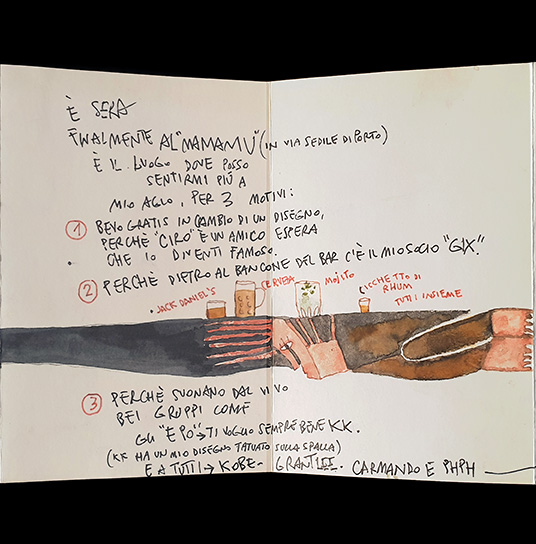 È SERA
FINALMENTE AL "MAMAMÙ" (IN VIA SEDILE DI PORTO)
È IL LUOGO DOVE POSSO
SENTIRMI PIÚ A
MIO AGIO, PER 3 MOTIVI:
1 BEVO GRATIS IN CAMBIO DI UN DISEGNO,
PERCHÈ "CIRO" È UN AMICO E SPERA
CHE IO DIVENTI FAMOSO.
2 PERCHÈ DIETRO AL BANCONE DEL BAR C'È IL MIO SOCIO "GIX".
JACK DANIEL'S
CERVEZA
MOJITO
CICCHETTO DI
RHUM
TUTTI INSIEME
3 PERCHÈ SUONANO DAL VIVO
BEI GRUPPI COME
GLI "EPO" → TI VOGLIO SEMPRE BENE KK.
(KK HA UN MIO DISEGNO TATUATO SULLA SPALLA)
E A TUTTI → KOBE - CARMANDO E PHPH